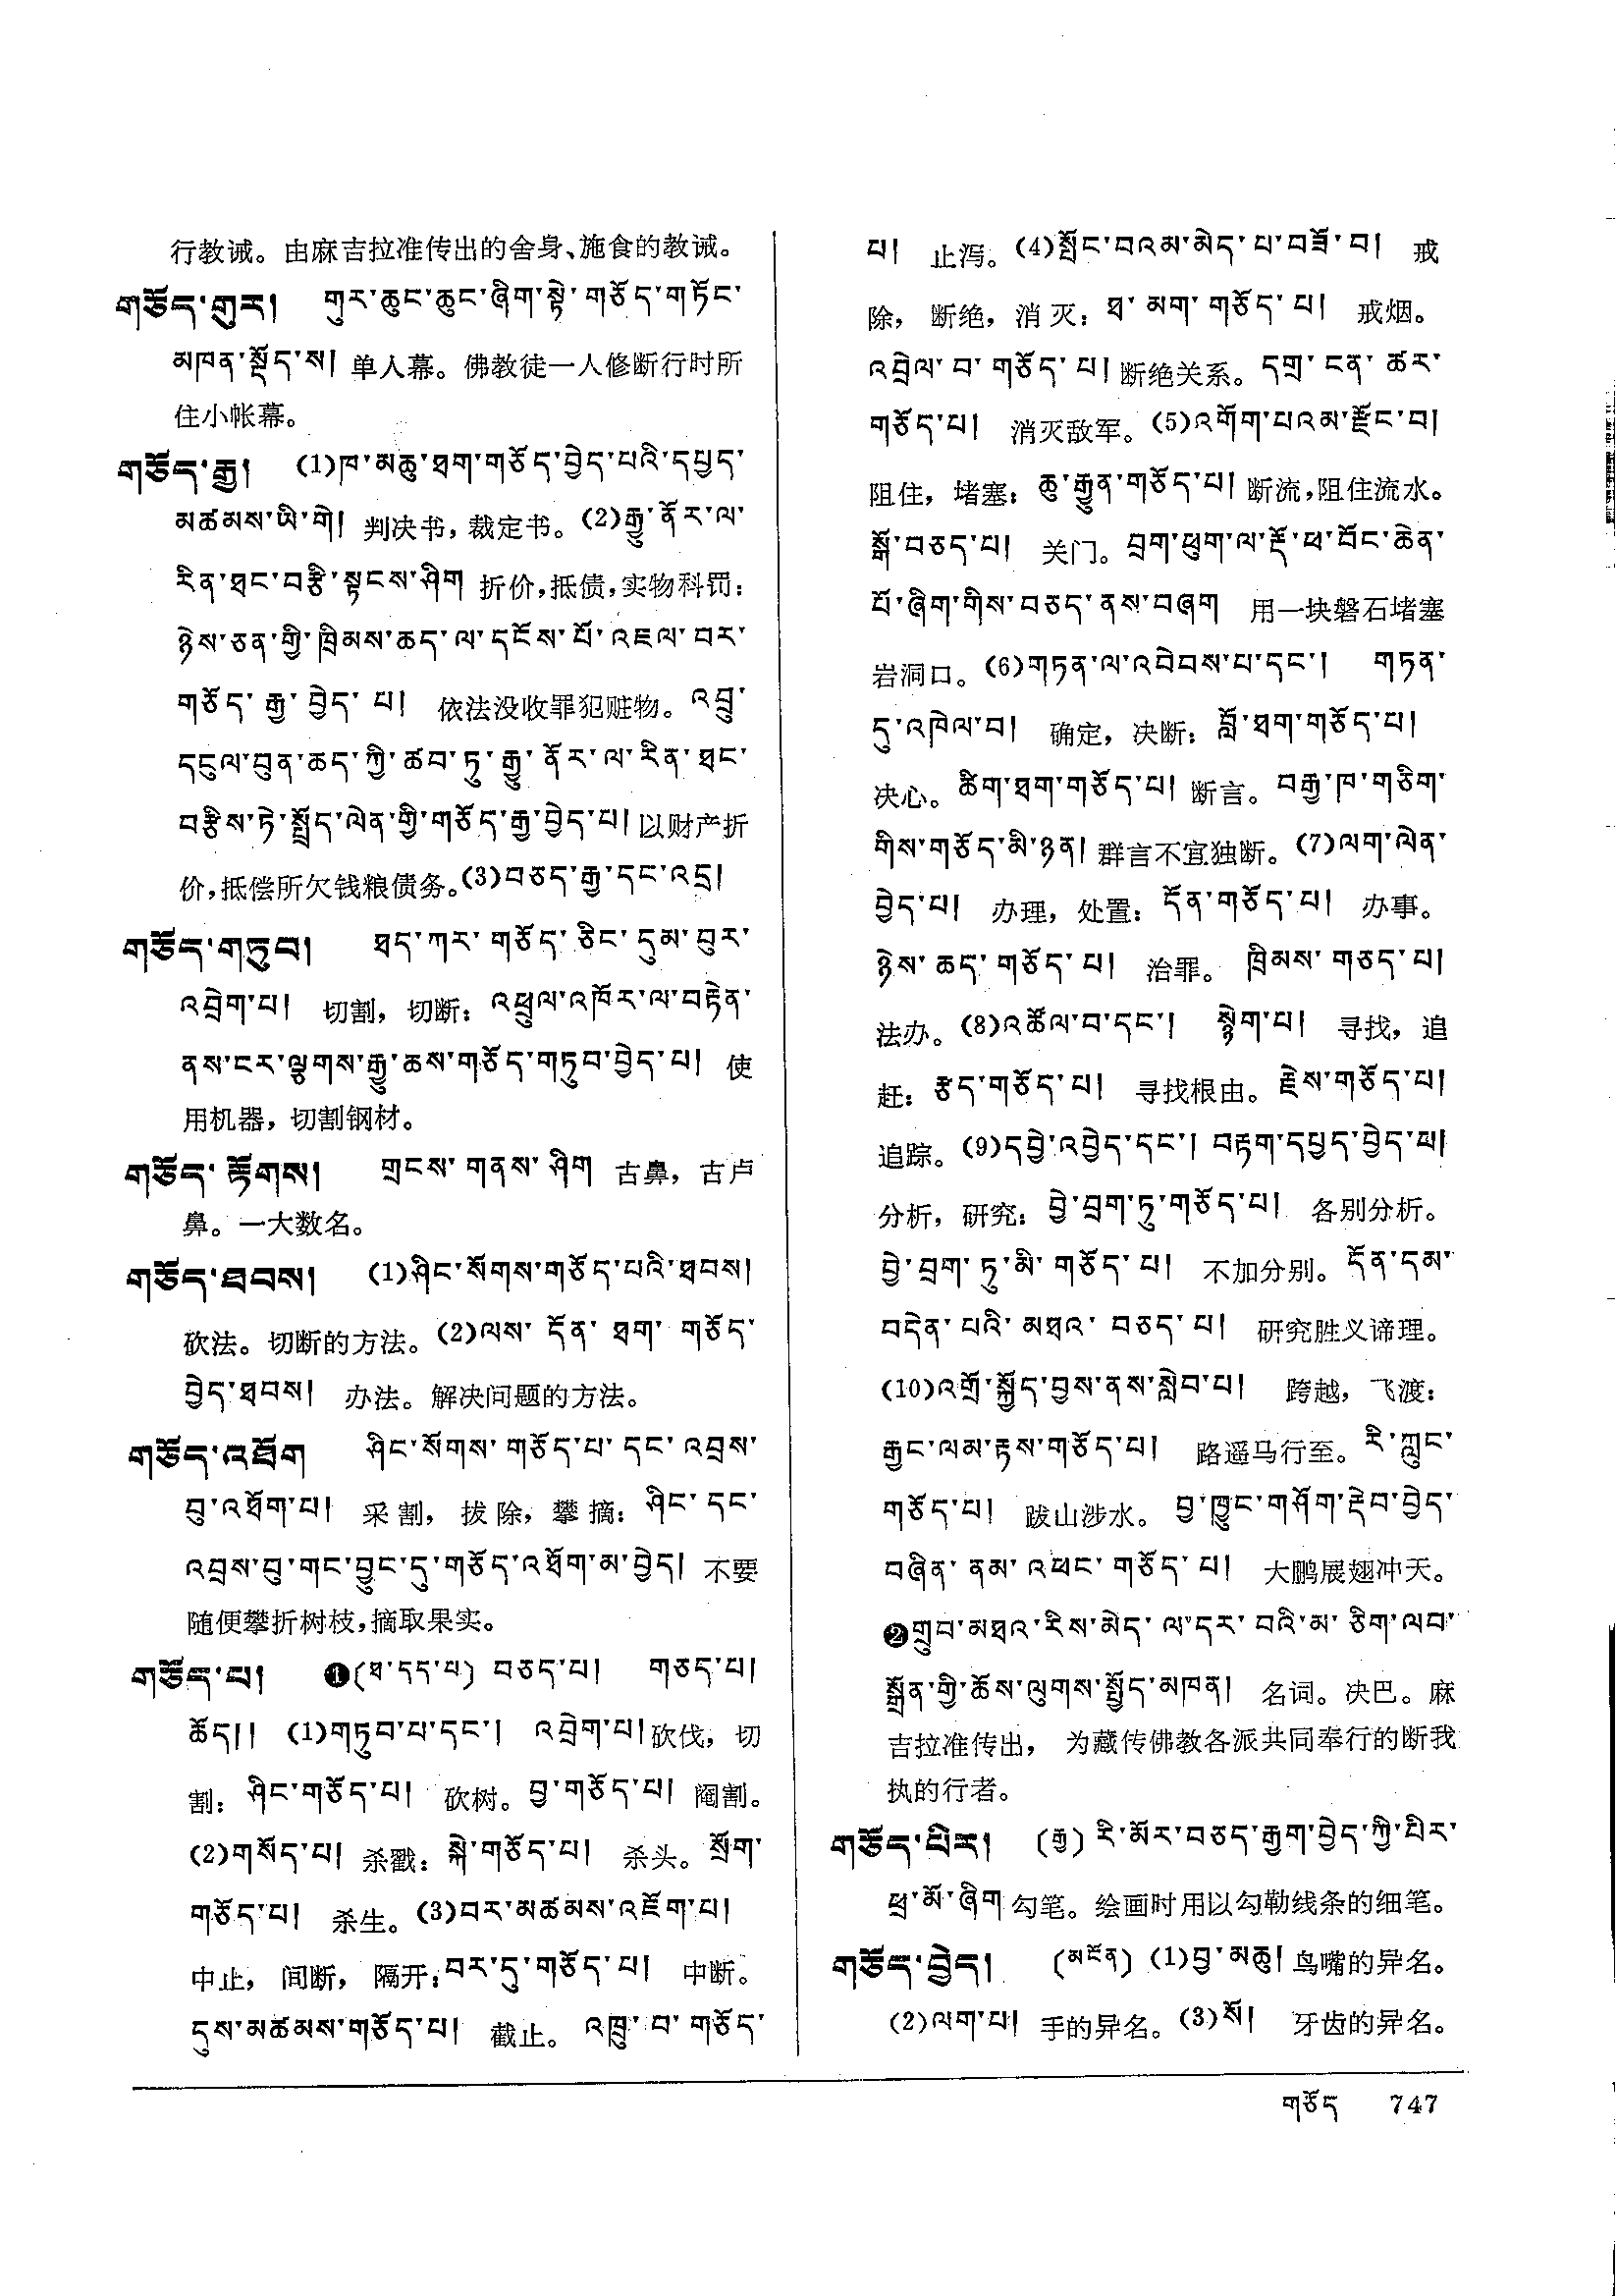 行教诫。由麻吉拉准传出的舍身、施食的教诫。
གཅོད་གུར། གུར་ཆུང་ཆུང་ཞིག་སྟེ་གཅོད་གཏོང་
མཁན་སྡོད་ས། 单人幕。佛教徒一人修断行时所
住小帐幕。
གཅོད་རྒྱ། (1)ཁ་མཆུ་ཐག་གཅོད་བྱེད་པའི་དཔྱད་
མཚམས་ཡི་གེ། 判决书,裁定书。(2)རྒྱུ་ནོར་ལ་
རིན་ཐང་བརྩི་སྟངས་ཤིག 折价,抵债,实物科罚:
ཉེས་ཅན་གྱི་ཁྲིམས་ཆད་ལ་དངོས་པོ་འཇལ་བར་
གཅོད་རྒྱ་བྱེད་པ། 依法没收罪犯赃物。འབྲུ་
དངུལ་བུན་ཆད་ཀྱི་ཚབ་ཏུ་རྒྱུ་ནོར་ལ་རིན་ཐང་
བརྩིས་ཏེ་སྤྲོད་ལེན་གྱི་གཅོད་རྒྱ་བྱེད་པ། 以财产折
价,抵偿所欠钱粮债务。(3)བཅད་རྒྱ་དང་འདྲ།
གཅོད་གཏུབ། ཐད་ཀར་གཅོད་ཅིང་དུམ་བུར་
འབྲེག་པ། 切割,切断:འཕྲུལ་འཁོར་ལ་བརྟེན་
ནས་ངར་ལྕགས་རྒྱུ་ཆས་གཅོད་གཏུབ་བྱེད་པ། 使
用机器,切割钢材。
གཅོད་རྟོགས། གྲངས་གནས་ཤིག 古鼻,古卢
鼻。一大数名。
གཅོད་ཐབས། (1)ཤིང་སོགས་གཅོད་པའི་ཐབས།
砍法。切断的方法。(2)ལས་དོན་ཐག་གཅོད་
བྱེད་ཐབས། 办法。解决问题的方法。
གཅོད་འཐོག ཤིང་སོགས་གཅོད་པ་དང་འབྲས་
བུ་འཐོག་པ། 采割,拔除,攀摘:ཤིང་དང་
འབྲས་བུ་གང་བྱུང་དུ་གཅོད་འཐོག་མ་བྱེད། 不要
随便攀折树枝,摘取果实。
གཅོད་པ། ❶(ཐ་དད་པ) བཅད་པ། གཅད་པ།
ཆོད།། (1)གཏུབ་པ་དང་། འབྲེག་པ། 砍伐,切
割:ཤིང་གཅོད་པ། 砍树。བྱ་གཅོད་པ། 阉割。
(2)གསོད་པ། 杀戮:སྐེ་གཅོད་པ། 杀头。སྲོག་
གཅོད་པ། 杀生。(3)བར་མཚམས་འཇོག་པ།
中止,间断,隔开:བར་དུ་གཅོད་པ། 中断。
དུས་མཚམས་གཅོད་པ། 截止。འཁྲུ་བ་གཅོད་
པ། 止泻。(4)སྤོང་བའམ་མེད་པ་བཟོ་བ། 戒
除,断绝,消灭:ཐ་མག་གཅོད་པ། 戒烟。
འབྲེལ་བ་གཅོད་པ། 断绝关系。དགྲ་ངན་ཚར་
གཅོད་པ། 消灭敌军。(5)འགོག་པའམ་རྫོང་བ།
阻住,堵塞:ཆུ་རྒྱུན་གཅོད་པ། 断流,阻住流水。
སྒོ་བཅད་པ། 关门。བྲག་ཕུག་ལ་རྡོ་ཕ་བོང་ཆེན་
པོ་ཞིག་གིས་བཅད་ནས་བཞག 用一块磐石堵塞
岩洞口。(6)གཏན་ལ་འབེབས་པ་དང་། གཏན་
དུ་འཁེལ་བ། 确定,决断:བློ་ཐག་གཅོད་པ།
决心。ཚིག་ཐག་གཅོད་པ། 断言。བརྒྱ་ཁ་གཅིག་
གིས་གཅོད་མི་ཉན། 群言不宜独断。(7)ལག་ལེན་
བྱེད་པ། 办理,处置:དོན་གཅོད་པ། 办事。
ཉེས་ཆད་གཅོད་པ། 治罪。ཁྲིམས་གཅད་པ།
法办。(8)འཚོལ་བ་དང་། སྙེག་པ། 寻找,追
赶:རྩད་གཅོད་པ། 寻找根由。རྗེས་གཅོད་པ།
追踪。(9)དབྱེ་འབྱེད་དང་། བརྟག་དཔྱད་བྱེད་པ།
分析,研究:བྱེ་བྲག་ཏུ་གཅོད་པ། 各别分析。
བྱེ་བྲག་ཏུ་མི་གཅོད་པ། 不加分别。དོན་དམ་
བདེན་པའི་མཐའ་བཅད་པ། 研究胜义谛理。
(10)འགྲོ་སྐྱོད་བྱས་ནས་སླེབ་པ། 跨越,飞渡:
རྒྱང་ལམ་རྟས་གཅོད་པ། 路遥马行至。རི་ཀླུང་
གཅོད་པ། 跋山涉水。བྱ་ཁྱུང་གཤོག་རྡེབ་བྱེད་
བཞིན་ནམ་འཕང་གཅོད་པ། 大鹏展翅冲天。
❷གྲུབ་མཐའ་རིས་མེད་ལ་དར་བའི་མ་ཅིག་ལབ་
སྒྲོན་གྱི་ཆོས་ལུགས་སྤྱོད་མཁན། 名词。决巴。麻
吉拉准传出,为藏传佛教各派共同奉行的断我
执的行者。
གཅོད་པིར། (རྒྱ) རི་མོར་བཅད་རྒྱག་བྱེད་ཀྱི་པིར་
ཕྲ་མོ་ཞིག 勾笔。绘画时用以勾勒线条的细笔。
གཅོད་བྱེད། (མངོན) (1)བྱ་མཆུ། 鸟嘴的异名。
(2)ལག་པ། 手的异名。(3)སོ། 牙齿的异名。
གཅོད 747